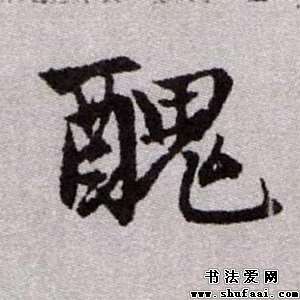 醜
书法爱网
www.shufaai.com